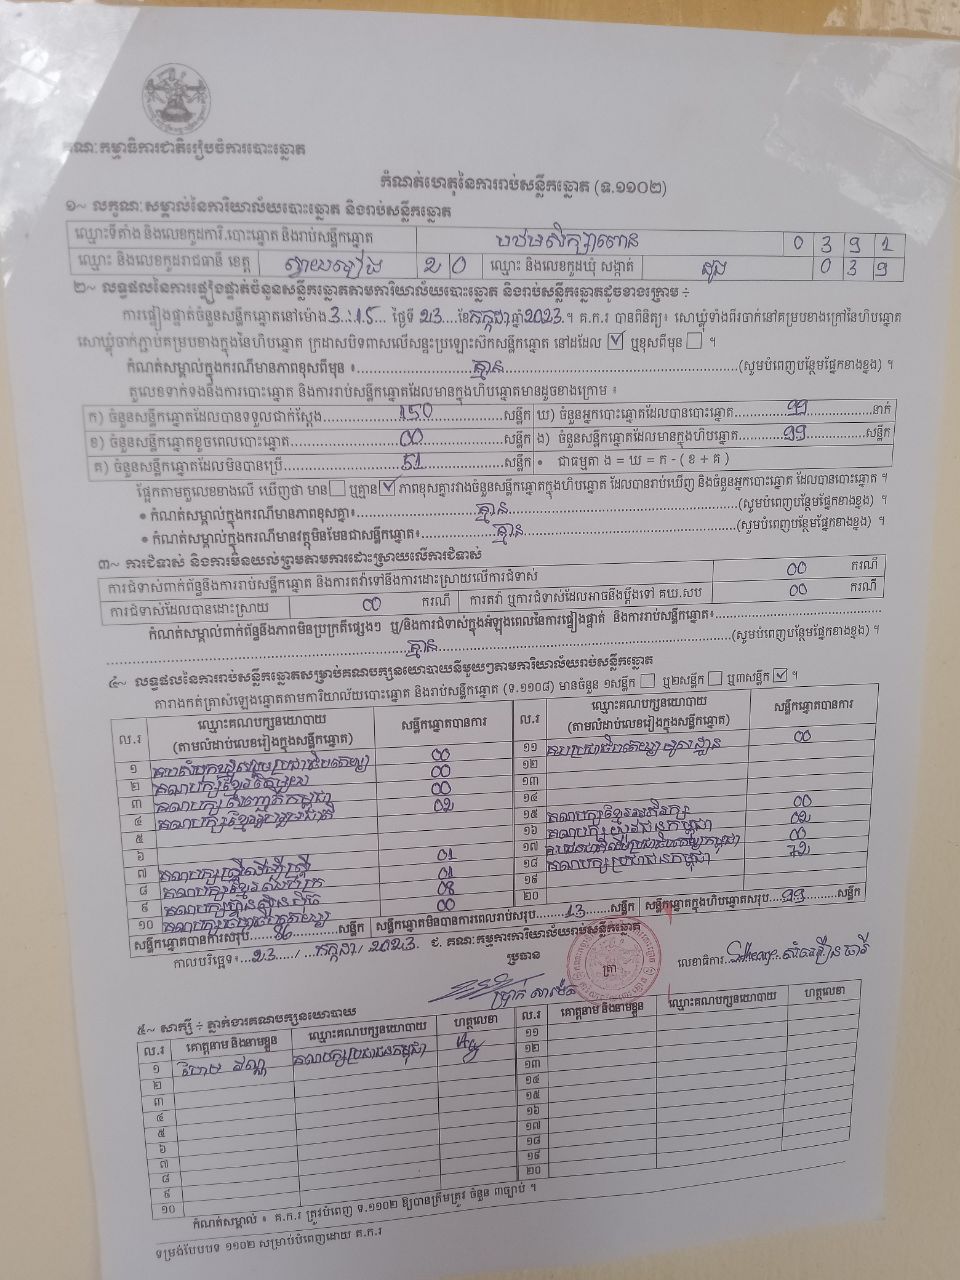 គណៈកម្មាធិការជាតិរៀបចំការបោះឆ្នោត
កំណត់ហេតុនៃការរាប់សន្លឹកឆ្នោត (ទ.១១០២)
១~ លក្ខណៈសម្គាល់នៃការិយាល័យបោះឆ្នោត និងរាប់សន្លឹកឆ្នោត
ឈ្មោះទីតាំង និងលេខកូដការិ.បោះឆ្នោត និងរាប់សន្លឹកឆ្នោត 0 3 9 1
ឈ្មោះ និងលេខកូដរាជធានី ខេត្ត ស្វាយរៀង 2 0 ឈ្មោះ និងលេខកូដឃុំ សង្កាត់ 0 3 9
២~ លទ្ធផលនៃការផ្ទៀងផ្ទាត់ចំនួនសន្លឹកឆ្នោតតាមការិយាល័យបោះឆ្នោត និងរាប់សន្លឹកឆ្នោតដូចខាងក្រោម ÷
ការផ្ទៀងផ្ទាត់ចំនួនសន្លឹកឆ្នោតនៅម៉ោង 3:15 ថ្ងៃទី 23 ខែ កក្កដា ឆ្នាំ 2023 ។ គ.ក.រ បានពិនិត្យ៖ សោឃ្លុំទាំងពីរចាក់នៅគម្របខាងក្រៅនៃហិបឆ្នោត
សោឃ្លុំចាក់ភ្ជាប់គម្របខាងក្នុងនៃហិបឆ្នោត ក្រដាសបិទពាសលើសន្ទះប្រឡោះស៊កសន្លឹកឆ្នោត នៅដដែល ☑ ឬខុសពីមុន ☐ ។
កំណត់សម្គាល់ក្នុងករណីមានភាពខុសពីមុន ៖ គ្មាន (សូមបំពេញបន្ថែមផ្នែកខាងខ្នង) ។
តួលេខទាក់ទងនឹងការបោះឆ្នោត និងការរាប់សន្លឹកឆ្នោតដែលមានក្នុងហិបឆ្នោតមានដូចខាងក្រោម ៖
ក) ចំនួនសន្លឹកឆ្នោតដែលបានទទួលជាក់ស្តែង 150 សន្លឹក ឃ) ចំនួនអ្នកបោះឆ្នោតដែលបានបោះឆ្នោត 99 នាក់
ខ) ចំនួនសន្លឹកឆ្នោតខូចពេលបោះឆ្នោត 00 សន្លឹក ង) ចំនួនសន្លឹកឆ្នោតដែលមានក្នុងហិបឆ្នោត 99 សន្លឹក
គ) ចំនួនសន្លឹកឆ្នោតដែលមិនបានប្រើ 51 សន្លឹក • ជាធម្មតា ង = ឃ = ក - ( ខ + គ )
ផ្អែកតាមតួលេខខាងលើ ឃើញថា មាន ☐ ឬគ្មាន ☑ ភាពខុសគ្នារវាងចំនួនសន្លឹកឆ្នោតក្នុងហិបឆ្នោត ដែលបានរាប់ឃើញ និងចំនួនអ្នកបោះឆ្នោត ដែលបានបោះឆ្នោត ។
• កំណត់សម្គាល់ក្នុងករណីមានភាពខុសគ្នា៖ គ្មាន (សូមបំពេញបន្ថែមផ្នែកខាងខ្នង) ។
• កំណត់សម្គាល់ក្នុងករណីមានវត្ថុមិនមែនជាសន្លឹកឆ្នោត៖ គ្មាន (សូមបំពេញបន្ថែមផ្នែកខាងខ្នង) ។
៣~ ការជំទាស់ និងការមិនយល់ព្រមតាមការដោះស្រាយលើការជំទាស់
ការជំទាស់ពាក់ព័ន្ធនឹងការរាប់សន្លឹកឆ្នោត និងការតវ៉ាទៅនឹងការដោះស្រាយលើការជំទាស់ 00 ករណី
ការជំទាស់ដែលបានដោះស្រាយ 00 ករណី ការតវ៉ា ឬការជំទាស់ដែលអាចនឹងប្តឹងទៅ គឃ.សប 00 ករណី
កំណត់សម្គាល់ពាក់ព័ន្ធនឹងភាពមិនប្រក្រតីផ្សេងៗ ឬ/និងការជំទាស់ក្នុងអំឡុងពេលនៃការផ្ទៀងផ្ទាត់ និងការរាប់សន្លឹកឆ្នោត៖
គ្មាន (សូមបំពេញបន្ថែមផ្នែកខាងខ្នង) ។
៤~ លទ្ធផលនៃការរាប់សន្លឹកឆ្នោតសម្រាប់គណបក្សនយោបាយនីមួយៗតាមការិយាល័យរាប់សន្លឹកឆ្នោត
តារាងកត់ត្រាសំឡេងឆ្នោតតាមការិយាល័យបោះឆ្នោត និងរាប់សន្លឹកឆ្នោត (ទ.១១០៨) មានចំនួន ១សន្លឹក ☐ ឬ២សន្លឹក ☐ ឬ៣សន្លឹក ☑ ។
ល.រ ឈ្មោះគណបក្សនយោបាយ (តាមលំដាប់លេខរៀងក្នុងសន្លឹកឆ្នោត) សន្លឹកឆ្នោតបានការ ល.រ ឈ្មោះគណបក្សនយោបាយ (តាមលំដាប់លេខរៀងក្នុងសន្លឹកឆ្នោត) សន្លឹកឆ្នោតបានការ
១ 00 ១១ 00
២ 00 ១២
៣ 00 ១៣
៤ គណបក្សខ្មែររួបរួមជាតិ 02 ១៤
៥ ១៥ 00
៦ ១៦ គណបក្សយុវជនកម្ពុជា 02
៧ 01 ១៧ 00
៨ 01 ១៨ គណបក្សប្រជាជនកម្ពុជា 72
៩ 08 ១៩
១០ 00 20
សន្លឹកឆ្នោតបានការសរុប 86 សន្លឹក សន្លឹកឆ្នោតមិនបានការពេលរាប់សរុប 13 សន្លឹក សន្លឹកឆ្នោតក្នុងហិបឆ្នោតសរុប 99 សន្លឹក
កាលបរិច្ឆេទ៖ 23 / កក្កដា / 2023 ជ. គណៈកម្មការការិយាល័យរាប់សន្លឹកឆ្នោត
ប្រធាន ត្រា លេខាធិការ
៥~ សាក្សី ÷ ភ្នាក់ងារគណបក្សនយោបាយ
ល.រ គោត្តនាម និងនាមខ្លួន ឈ្មោះគណបក្សនយោបាយ ហត្ថលេខា ល.រ គោត្តនាម និងនាមខ្លួន ឈ្មោះគណបក្សនយោបាយ ហត្ថលេខា
១ គណបក្សប្រជាជនកម្ពុជា ១១
២ ១២
៣ ១៣
៤ ១៤
៥ ១៥
៦ ១៦
៧ ១៧
៨ ១៨
៩ ១៩
១០ 20
កំណត់សម្គាល់ ៖ គ.ក.រ ត្រូវបំពេញ ទ.១១០២ ឱ្យបានត្រឹមត្រូវ ចំនួន ៣ច្បាប់ ។
ទម្រង់បែបបទ ១១០២ សម្រាប់បំពេញដោយ គ.ក.រ